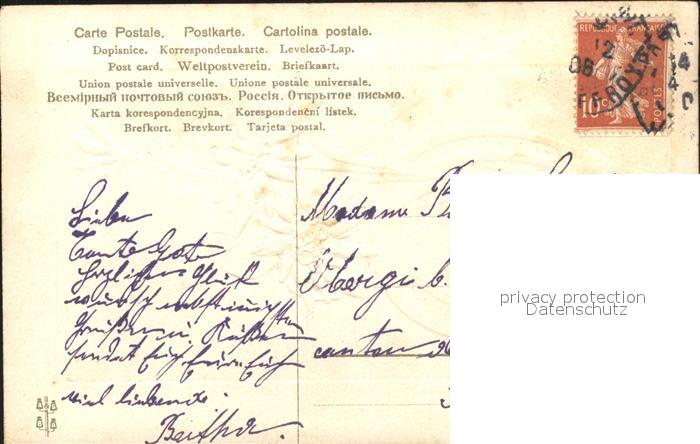 Carte Postale. Postkarte. Cartolina postale.
Dopisnice. Korrespondenzkarte. Levelező-Lap.
Post card. Weltpostverein. Briefkaart.
Union postale universelle. Unione postale universale.
Всемірный почтовый союзъ. Россія. Открытое письмо.
Karta korespondencyjna. Korespondenční lístek.
Brefkort. Brevkort. Tarjeta postal.
REPUBLIQUE FRANÇAISE
10
POSTES
Liebe
Tante
Herzlichen Glück
wunsch nebst innigsten
Grüßen u. Küssen
sendet Euch Eure Euch
viel liebende.
Bertha.
Madame
canton
privacy protection
Datenschutz